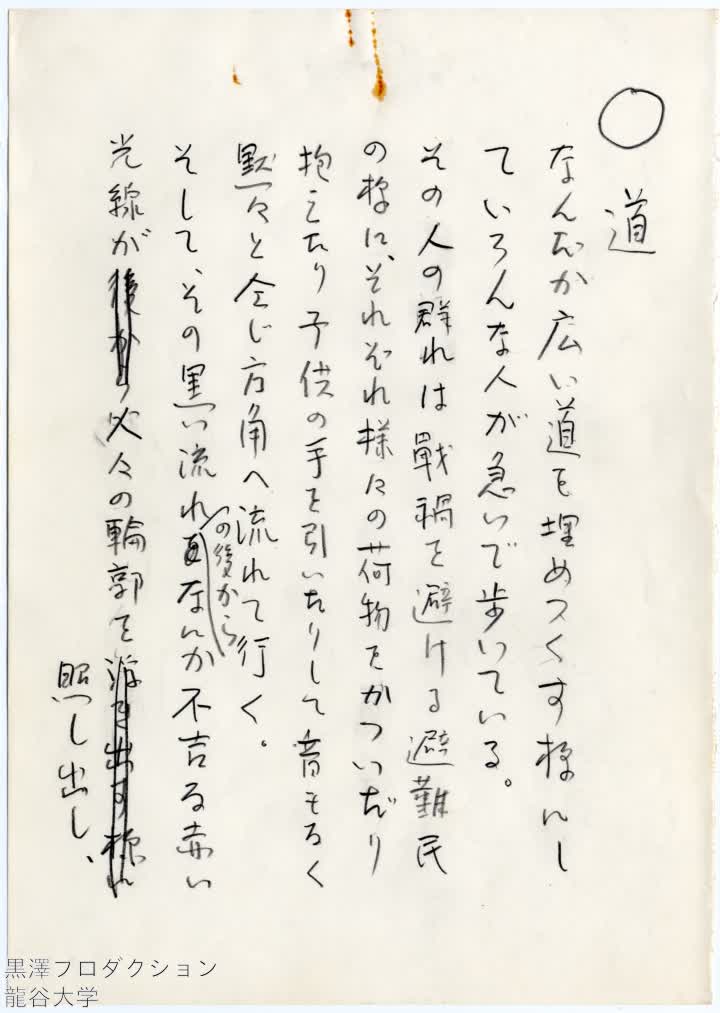 ○ 道
なんだか広い道を埋めつくす様にし
ていろんな人が急いで歩いている。
その人の群れは戦禍を避ける避難民
の様に、それぞれ様々の荷物をかついだり
抱えたり子供の手を引いたりして音もなく
黙々と仝じ方角へ流れて行く。
そして、その黒い流れの後からなんか不吉な赤い
光線が後から火々の輪郭を浮き出す様に
照し出し、
黒澤プロダクション
龍谷大学